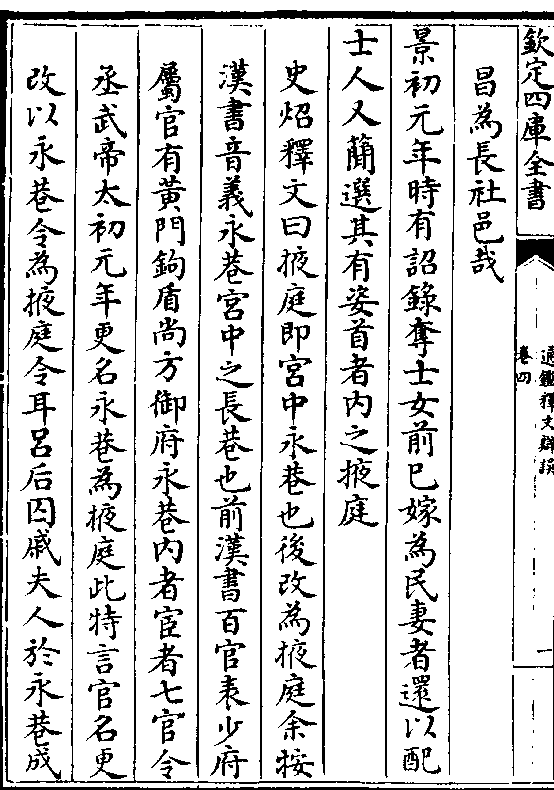 欽定四庫全書
通鑑釋文辯誤
卷四
一
昌為長社邑哉
景初元年時有詔錄奪士女前已嫁為民妻者還以配
士人又簡選其有姿首者內之掖庭
史炤釋文曰掖庭即宮中永巷也後改為掖庭余按
漢書音義永巷宮中之長巷也前漢書百官表少府
屬官有黃門鉤盾尚方御府永巷內者宦者七官令
丞武帝太初元年更名永巷為掖庭此特言官名更
改以永巷令為掖庭令耳呂后囚戚夫人於永巷成